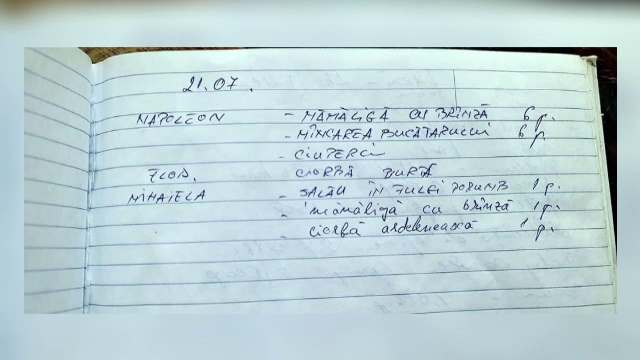 21.07.
NAPOLEON - MĂMĂLIGĂ CU BRÎNZĂ 6 p.
- MÎNCAREA BUCĂTARULUI 6 p
- CIUPERCI
FLOR. CIORBĂ BURTĂ
MIHAIELA - SALĂU ÎN FULGI PORUMB 1 p.
- mămăligă cu brînză 1 p.
- ciorbă ardelenească 1 p.